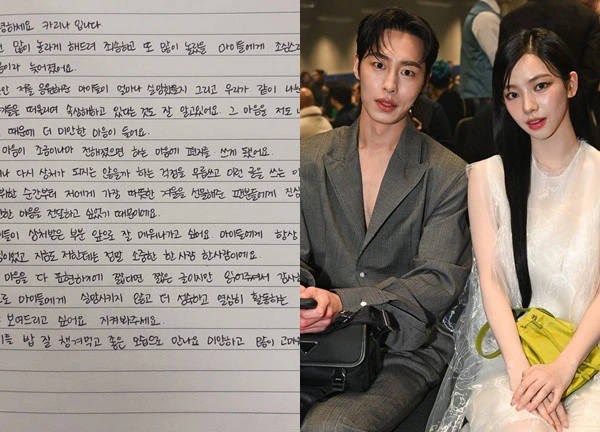 녕하세요 카리나 입니다
많이 놀라게 해드려 죄송하고 또 많이 놀랐을 마이들에게 조심스러
음이라 늦어졌어요.
안 저를 응원해준 마이들이 얼마나 실망했을지 그리고 우리가 같이 나눈
기들을 떠올리며 속상해하고 있다는 것도 잘 알고있어요. 그 마음을 저도 너
때문에 더 미안한 마음이 들어요.
마음이 조금이나마 전해졌으면 하는 마음에 편지를 쓰게 됐어요.
나 다시 상처가 되지는 않을까 하는 걱정을 무릅쓰고 이런 글을 쓰는 이
뷔한 순간부터 저에게 가장 따뜻한 겨울을 선물해준 팬분들에게 진심
안한 마음을 전달하고 싶었기 때문이에요.
이들이 상처받은 부분 앞으로 잘 메워나가고 싶어요. 마이들에게 항상
심이었고 지금도 저한테는 정말 소중한 한 사람 한사람이에요.
마음을 다 표현하기에 짧다면 짧은 글이지만 읽어주셔서 감사
으로 마이들에게 실망시키지 않고 더 성숙하고 열심히 활동하는
보여드리고 싶어요 지켜봐주세요.
이들 밥 잘 챙겨먹고 좋은 모습으로 만나요 미안하고 많이 고마